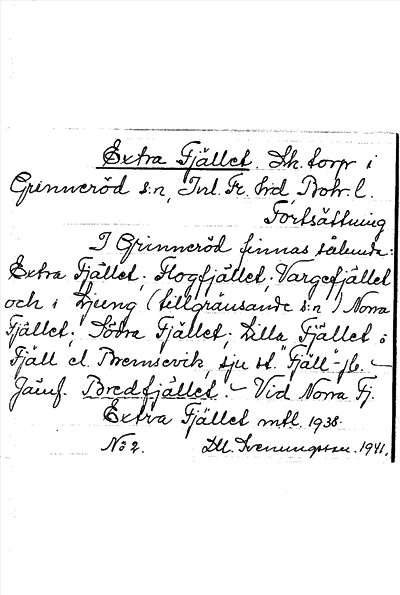 Extra Fjället. Lh. torp i
Grinneröd s:n, Inl. Fr. hd, Boh. l.
Fortsättning
I Grinneröd finnas sålunda:
Extra Fjället; Flogfjället; Vargefjället
och i Ljung (tillgränsande s:n) Norra
Fjället; Södra Fjället; Lilla Fjället o
Fjäll el. Bremsevik, sju st. "Fjäll"-
Jämf. Bredfjället. – Vid Norra Fj.
Extra Fjället mtl. 1938.
No 2. D. Svenungsson. 1941.